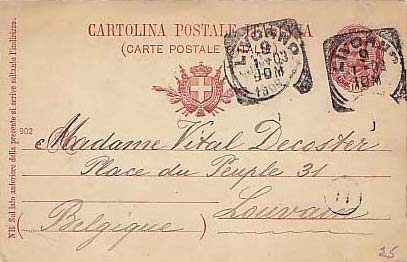 CARTOLINA POSTALE ITALIANA
(CARTE POSTALE D'ITALIE)
LIVORNO
LIVORNO
902
Madame Vital Decoster
Place du Peuple 31
Louvain
(Belgique)
11
NB. Sul lato anteriore della presente si scrive soltanto l'indirizzo.
25